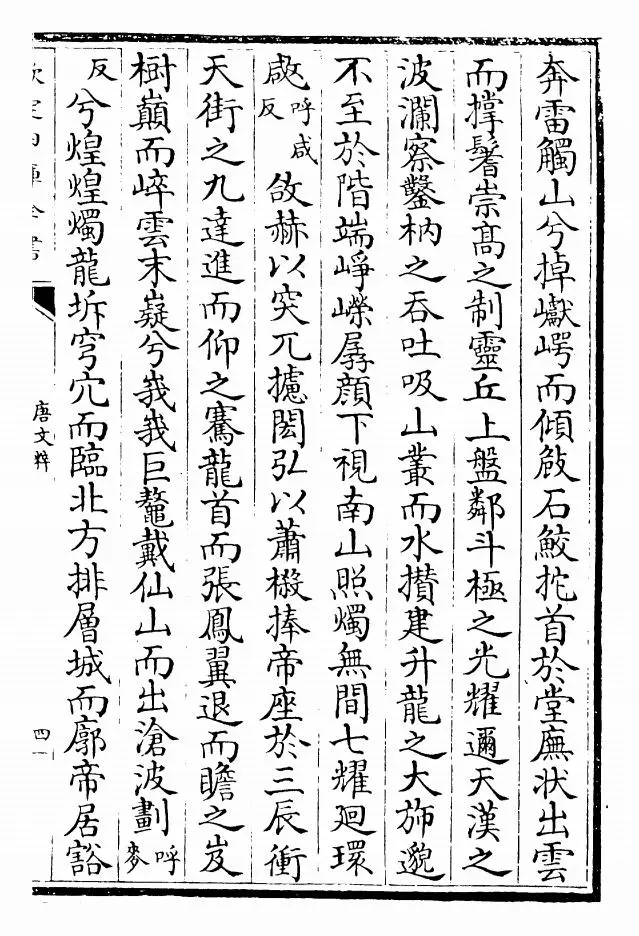 奔雷觸山兮掉巘崿而傾敧石鮫扡首於堂廡狀出雲
而撑鬐崇髙之制靈丘上盤鄰斗極之光耀邇天漢之
波瀾察鑿枘之吞吐吸山叢而水攅建升龍之大斾邈
不至於階端崢嶸孱顔下視南山照燭無間七耀廻環
㰹呼咸反欱赫以突兀㩀閎弘以蕭橃捧帝座於三辰衝
天街之九達進而仰之騫龍首而張鳳翼退而瞻之岌
樹巔而崪雲末嶷兮峩峩巨鼇戴仙山而出滄波劃呼麥
反兮煌煌燭龍坼穹穴而臨北方排層城而廓帝居豁
欽定四庫全書
唐文粹
四